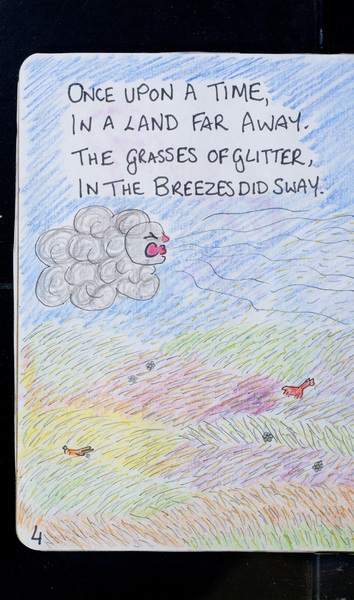 ONCE UPON A TIME,
IN A LAND FAR AWAY.
THE GRASSES OF GLITTER,
IN THE BREEZES DID SWAY.
4